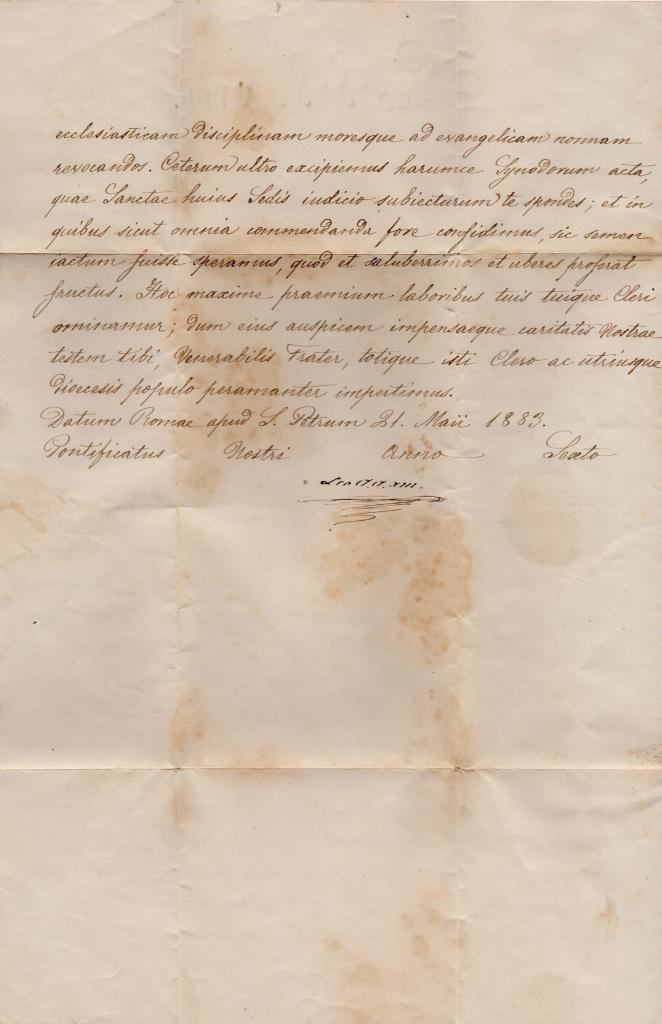 ecclesiasticam disciplinam moresque ad evangelicam normam
revocandos. Ceterum ultro excipiemus harumce Synodorum acta,
quae Sanctae huius Sedis iudicio subiecturum te spondes; et in
quibus sicut omnia commendanda fore confidimus, sic semen
iactum fuisse speramus, quod et saluberrimos et uberes proferat
fructus. Hoc maxime praemium laboribus tuis tuique Cleri
ominamur; dum eius auspicem impensaeque caritatis Nostrae
testem tibi, Venerabilis Frater, totique isti Clero ac utriusque
Dioecesis populo peramanter impertimus.
Datum Romae apud S. Petrum 21. Maii 1883.
Pontificatus Nostri Anno Sexto
Leo PP. XIII.